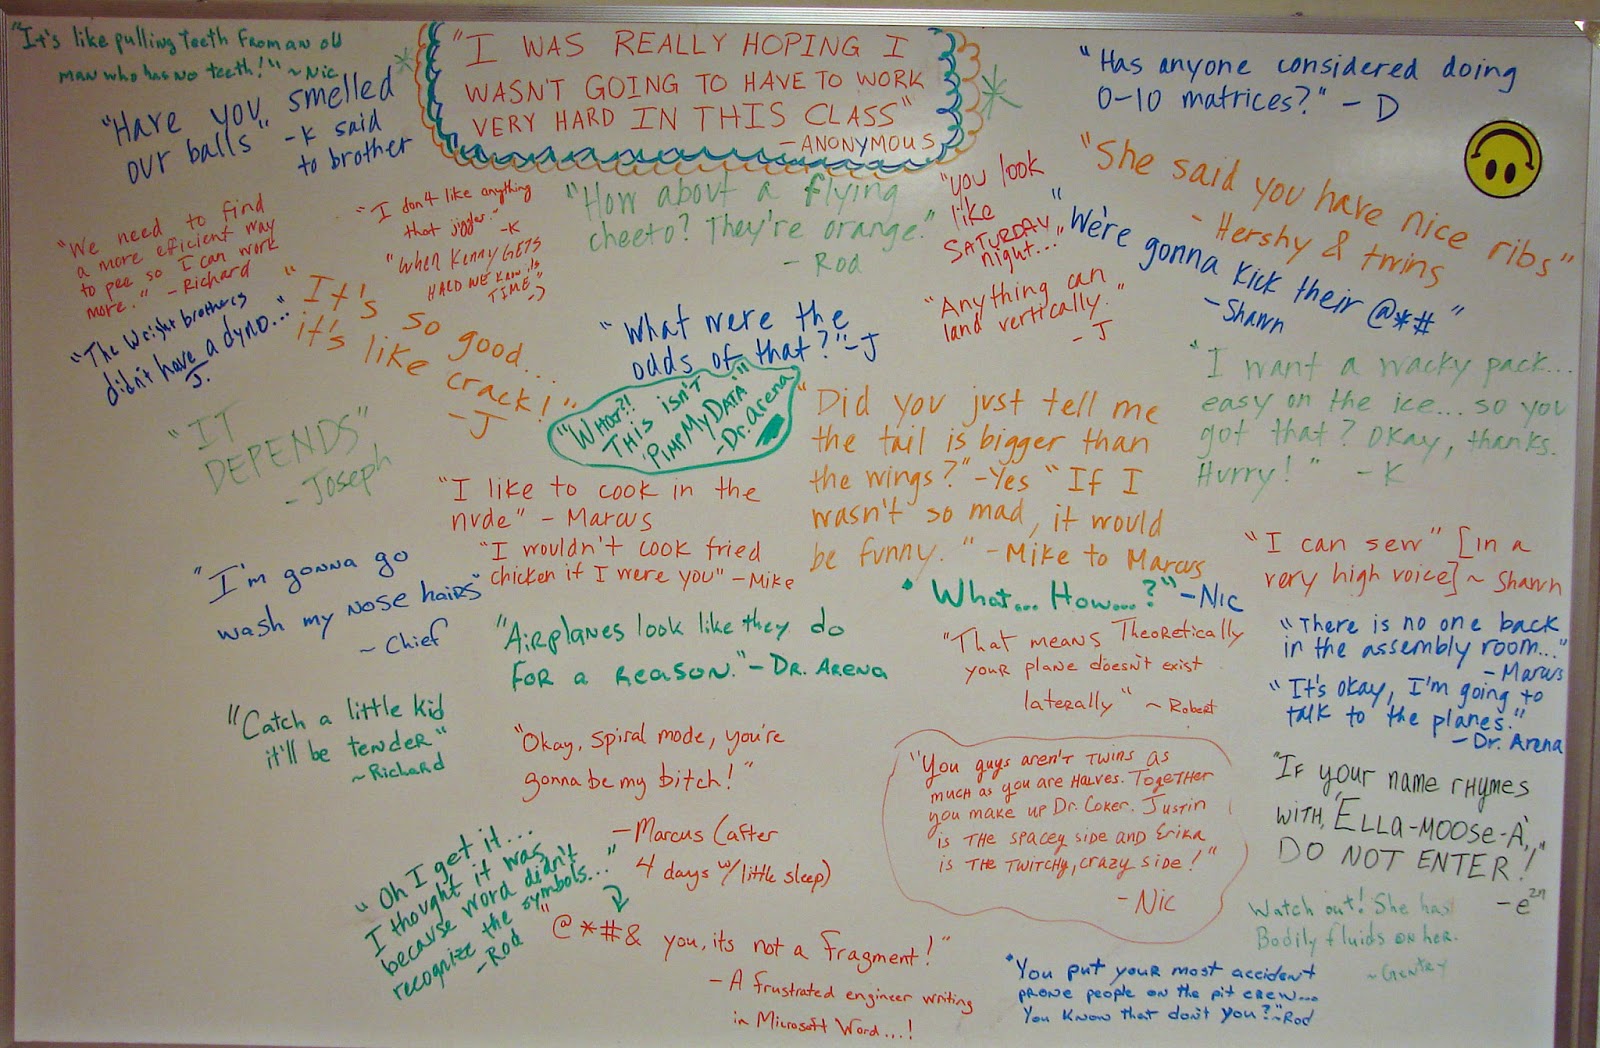 "It's like pulling Teeth From an old
man who has no teeth!" ~Nic
"Have you smelled
our balls" -K said
to brother
"I WAS REALLY HOPING I
WASN'T GOING TO HAVE TO WORK
VERY HARD IN THIS CLASS"
-ANONYMOUS
"Has anyone considered doing
0-10 matrices?" - D
"We need to find
a more efficient way
to pee so I can work
more." -Richard
"I don't like anything
that jiggles." -K
"When Kenny GETS
HALO WE KNOW its
TIME"
"How about a flying
cheeto? They're orange."
- Rod
"You look
like
SATURDAY
night..."
"She said you have nice ribs"
- Hershy & twins
"We're gonna kick their @*#"
-Shawn
"The Wright brothers
didn't have a dyno..."
J.
"It's so good...
it's like crack!"
-J
"What were the
odds of that?" -J
"Anything can
land vertically."
- J
"I want a wacky pack...
easy on the ice... so you
got that? Okay, thanks.
Hurry!" - K
"IT
DEPENDS"
- Joseph
"WHAT?!
THIS isn't
PIMP My DATA"
-Dr. Arena
"Did you just tell me
the tail is bigger than
the wings?" -Yes "If I
wasn't so mad, it would
be funny." -Mike to Marcus
"I like to cook in the
nude" - Marcus
"I wouldn't cook fried
chicken if I were you" -Mike
"I can sew" [in a
very high voice] ~ Shawn
"I'm gonna go
wash my nose hairs"
~ Chief
"What... How...?" -Nic
"Airplanes look like they do
For a reason." - Dr. Arena
"That means Theoretically
your plane doesn't exist
laterally" ~ Robert
"There is no one back
in the assembly room..."
- Marcus
"It's okay, I'm going to
talk to the planes."
- Dr. Arena
"Catch a little kid
it'll be tender"
~Richard
"Okay, spiral mode, you're
gonna be my bitch!"
-Marcus (after
4 days w/little sleep)
"You guys aren't twins as
much as you are halves. Together
you make up Dr. Coker. Justin
is the spacey side and Erika
is the twitchy, crazy side!"
- Nic
"IF your name rhymes
with 'ELLA-MOOSE-A',
DO NOT ENTER!"
- e²ⁿ
"Oh I get it...
I thought it was
because word didn't
recognize the symbols..."
-Rod
"@*#& you, its not a fragment!"
- A frustrated engineer writing
in Microsoft Word...!
Watch out! She has
Bodily fluids on her.
~ Gentry
"You put your most accident
prone people on the pit crew...
You know that don't you?" ~Rod